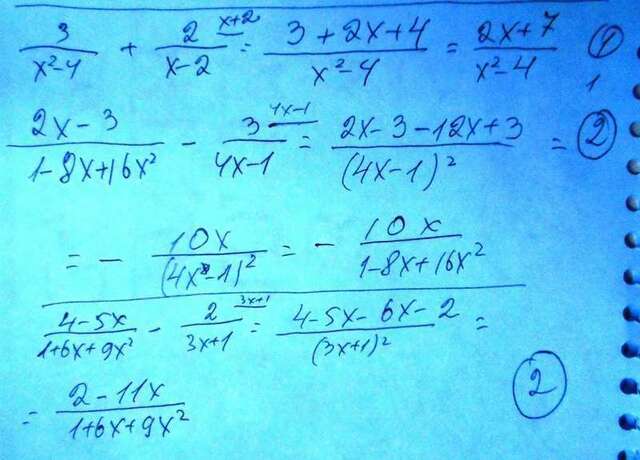 3/(x²-4) + 2/(x-2) x+2 = (3+2x+4)/(x²-4) = (2x+7)/(x²-4) 1
1
(2x-3)/(1-8x+16x²) - 3/(4x-1) 4x-1 = (2x-3-12x+3)/(4x-1)² = 2
= - 10x/(4x-1)² = - 10x/(1-8x+16x²)
(4-5x)/(1+6x+9x²) - 2/(3x+1) 3x+1 = (4-5x-6x-2)/(3x+1)² =
= (2-11x)/(1+6x+9x²) 2